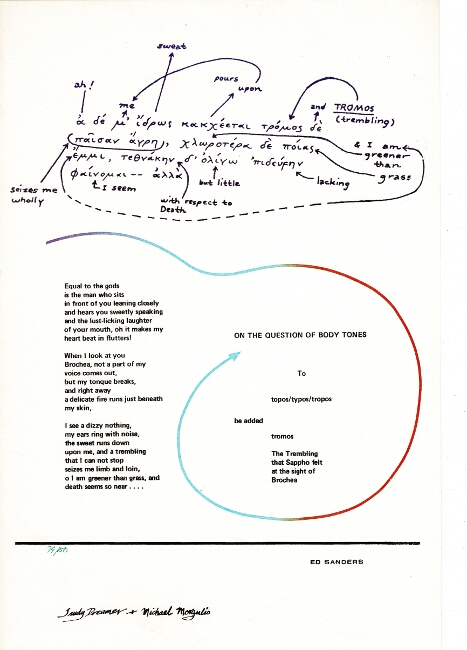 sweat
ah!
me
pours
upon
and TROMOS
(trembling)
ἀ δέ μ' ἴδρως κακχέεται τρόμος δὲ
παῖσαν ἄγρη, χλωροτέρα δὲ ποίας
ἔμμι, τεθνάκην δ' ὀλίγω 'πιδεύην
φαίνομαι -- ἀλλὰ
& I am
greener
than
grass
seizes me
wholly
I seem
with respect to
Death
but little
lacking
Equal to the gods
is the man who sits
in front of you leaning closely
and hears you sweetly speaking
and the lust-licking laughter
of your mouth, oh it makes my
heart beat in flutters!
When I look at you
Brochea, not a part of my
voice comes out,
but my tongue breaks,
and right away
a delicate fire runs just beneath
my skin,
I see a dizzy nothing,
my ears ring with noise,
the sweat runs down
upon me, and a trembling
that I can not stop
seizes me limb and loin,
o I am greener than grass, and
death seems so near . . . .
ON THE QUESTION OF BODY TONES
To
topos/typos/tropos
be added
tromos
The Trembling
that Sappho felt
at the sight of
Brochea
ED SANDERS
+ Michael